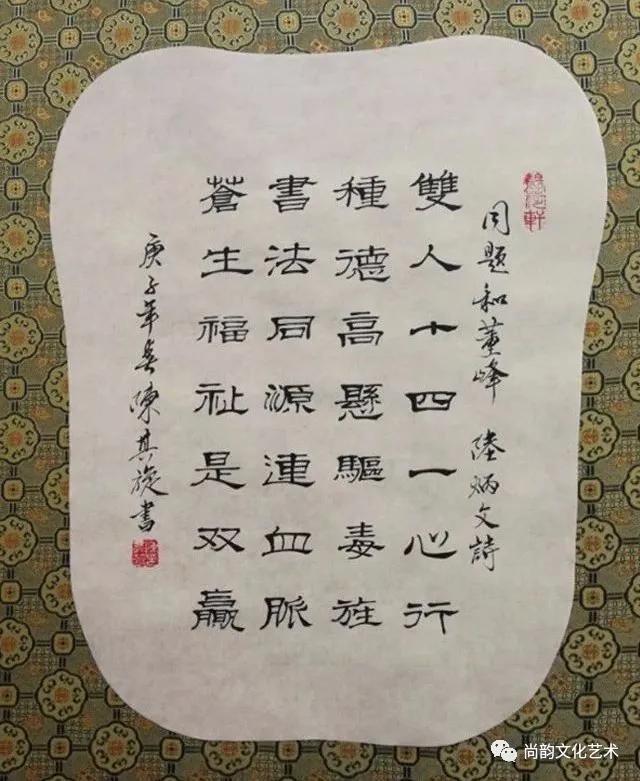 同题和董峰 陸炳文詩
雙人十四一心行
種德高懸驅毒旌
書法同源連血脈
蒼生福祉是双贏
庚子年春陳其旋書
尚韵文化艺术